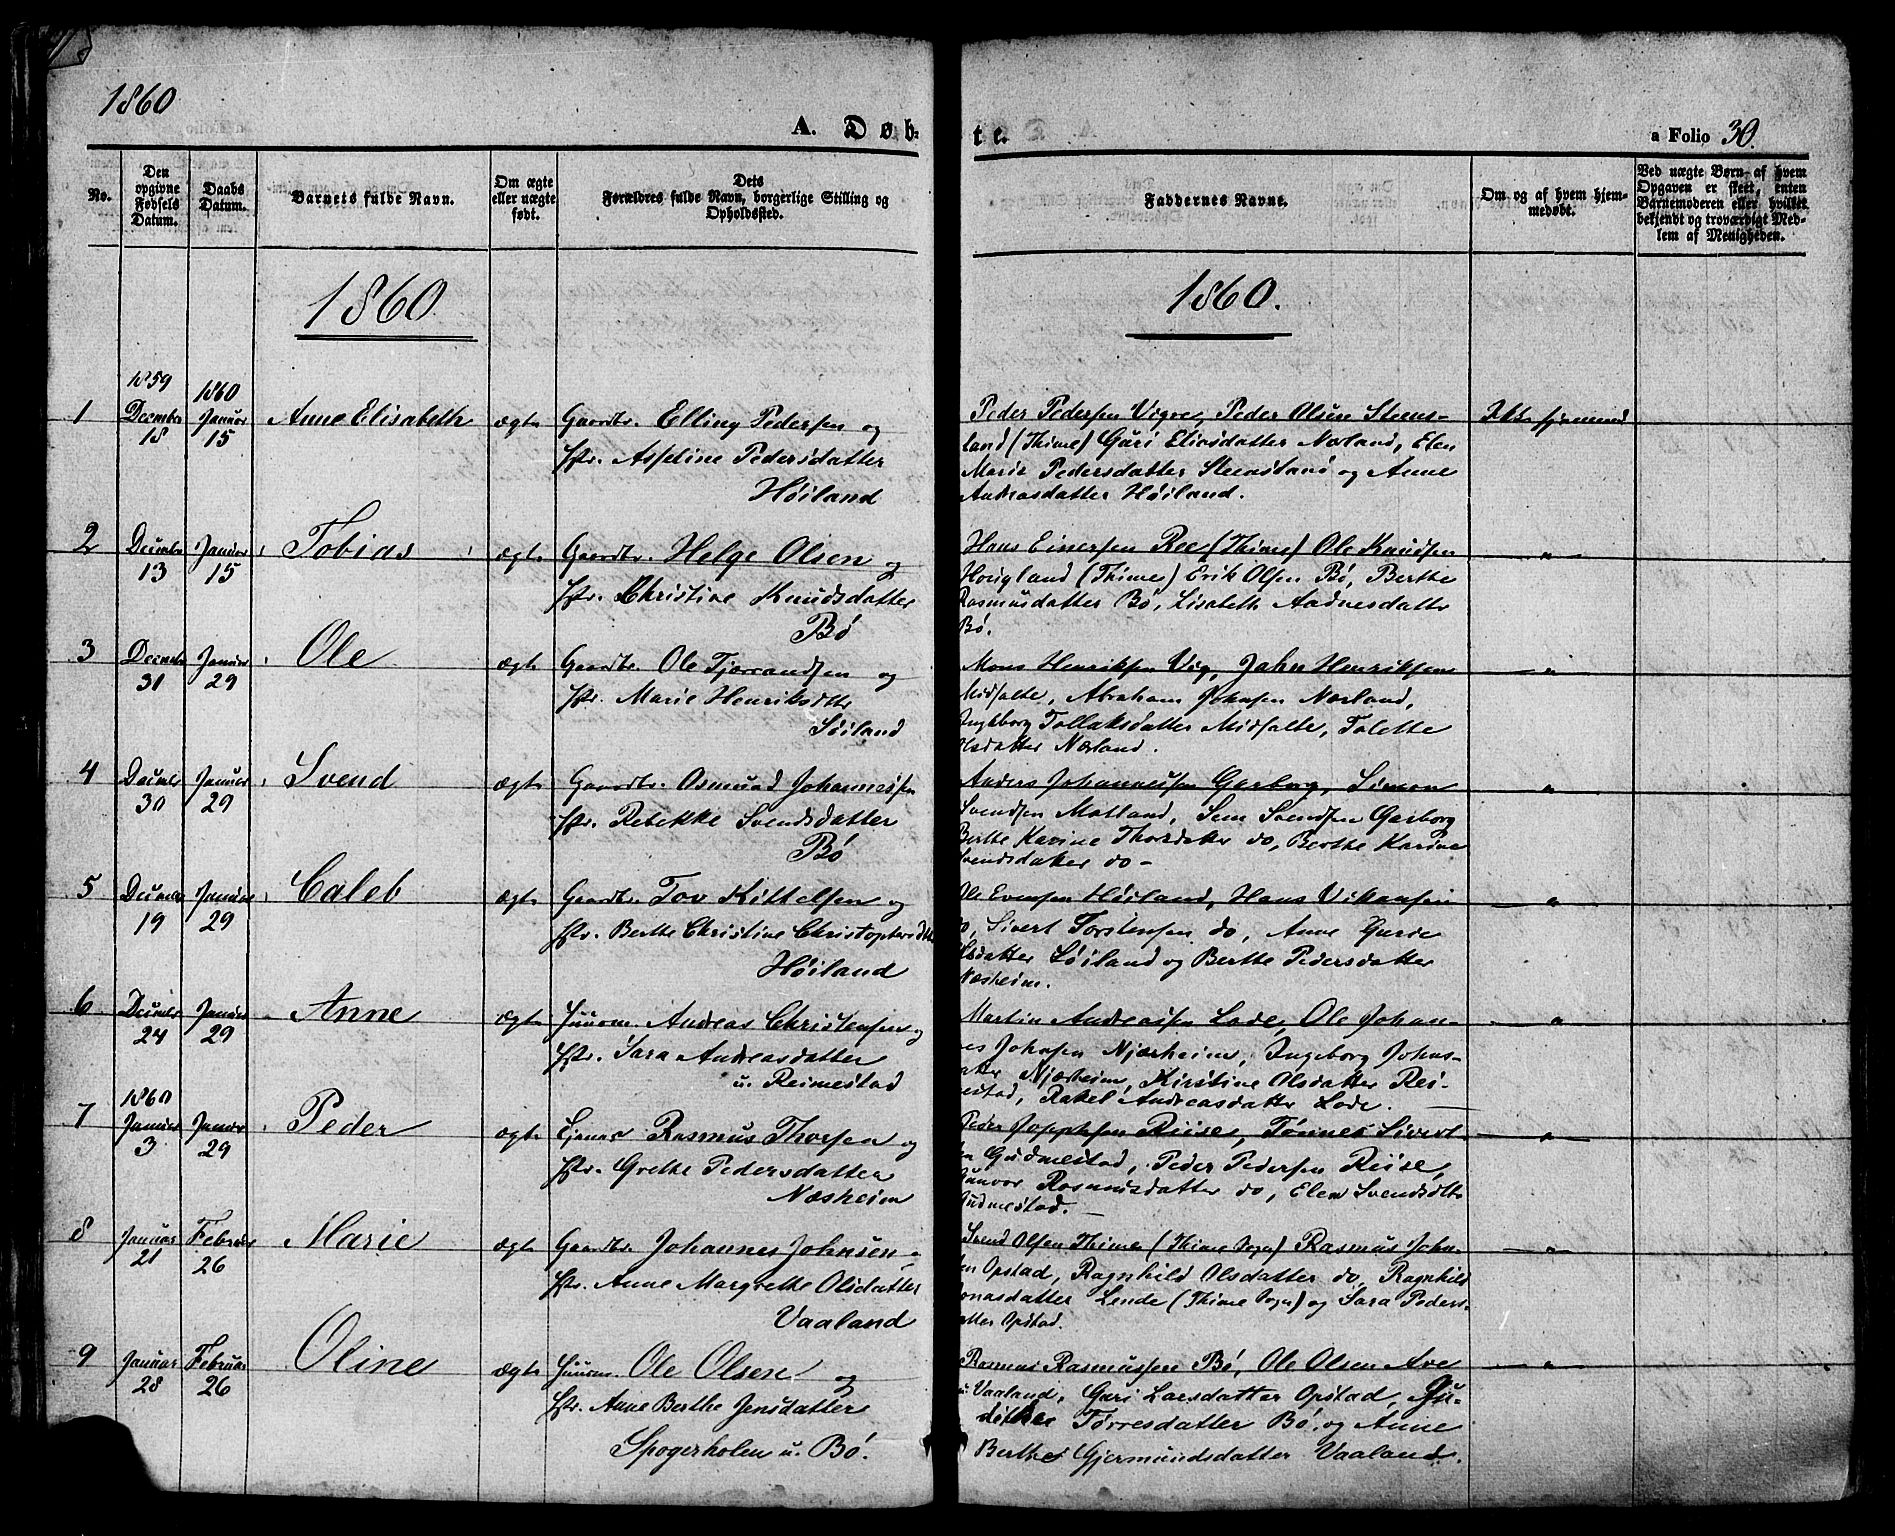 1860
A. Døb-
te.
a Folio 30.
No.
Den opgivne Fødsels Datum.
Daabs Datum.
Barnets fulde Navn.
Om ægte eller uægte født.
Dets Forældres fulde Navn, borgerlige Stilling og Opholdssted.
Faddernes Navne.
Om og af hvem hjem-
medøbt.
Ved uægte Børn af hvem
Opgaven er skett, enten
Barnemoderen eller hvilket
bekjendt og troværdigt Med-
lem af Menigheden.
1860
1860.
1859
1860
1 December 18 Januar 15 Anne Elisabeth ægte Gaardbr. Elling Pedersen og
Hstr. Asseline Pedersdatter
Høiland
Peder Pedersen Vigre, Peder Olsen Steens-
land (Thime) Guri Eliasdatter Nærland, Elen
Marie Pedersdatter Steensland og Anne
Andreasdatter Høiland.
2 December 13 Januar 15 Tobias ægte Gaardbr. Helge Olsen og
Hstr. Christine Knudsdatter
Bø
Hans Einersen Ree (Thime) Ole Knudsen
Hougland (Thime) Erik Olsen Bø, Berthe
Rasmusdatter Bø, Lisabeth Aadnesdatter
Bø.
3 December 31 Januar 29 Ole ægte Gaardbr. Ole Tjørrandsen og
Hstr. Marie Henriksdtr
Søiland
Mons Henriksen Vig, John Henriksen
Midfalte, Abraham Johnsen Nærland,
Ingeborg Tollaksdatter Midfalte, Tolette
Olsdatter Nærland.
4 December 30 Januar 29 Svend ægte Gaardbr. Osmund Johannessen
Hstr. Rebekke Svendsdatter
Bø
Anders Johannessen Garborg, Simon
Svendsen Motland, Sem Svendsen Garborg
Berthe Karine Thorsdatter do, Berthe Karine
Svendsdatter do -
5 December 19 Januar 29 Caleb ægte Gaardbr. Tov Kittelsen og
Hstr. Berthe Christine Christophersdtr
Høiland
Ole Evensen Høiland, Hans Vikansen
do, Sivert Torstensen do, Anne Gurde
Olsdatter Søiland og Berthe Pedersdatter
Næsheim.
6 December 24 Januar 29 Anne ægte Huusm. Andreas Christensen og
Hstr. Sara Andreasdatter
u. Reimestad
Martin Andreassen Lode, Ole Johan-
nes Johnsen Njærheim, Ingeborg Johns-
datter Njærheim, Kirstine Olsdatter Rei-
mestad, Rakel Andreasdatter Lode.
1860
7 Januar 3 Januar 29 Peder ægte Rasmus Thorsen og
Hstr. Grethe Pedersdatter
Næsheim
Peder Joppesen Reise, Tønnes Siverts-
en Gudmestad, Peder Pedersen Reise,
Gunvor Rasmusdatter do, Elen Svendsdtr
Gudmestad.
8 Januar 21 Februar 26 Marie ægte Gaardbr. Johannes Johnsen
Hstr. Anne Margrethe Olsdatter
Vaaland
Svend Olsen Thime (Thime Sogn) Rasmus John-
sen Opstad, Ragnhild Olsdatter do, Ragnhild
Jonasdatter Lende (Thime Sogn) og Sara Peders-
datter Opstad.
9 Januar 28 Februar 26 Oline ægte Huusm. Ole Olsen og
Hstr. Anne Berthe Jensdatter
Spogerholen u. Bø.
Rasmus Rasmussen Bø, Ole Olsen Ave
u. Vaaland, Guri Larsdatter Opstad, Gu-
dithe Tørresdatter Bø og Anne
Berthe Gjermundsdatter Vaaland.